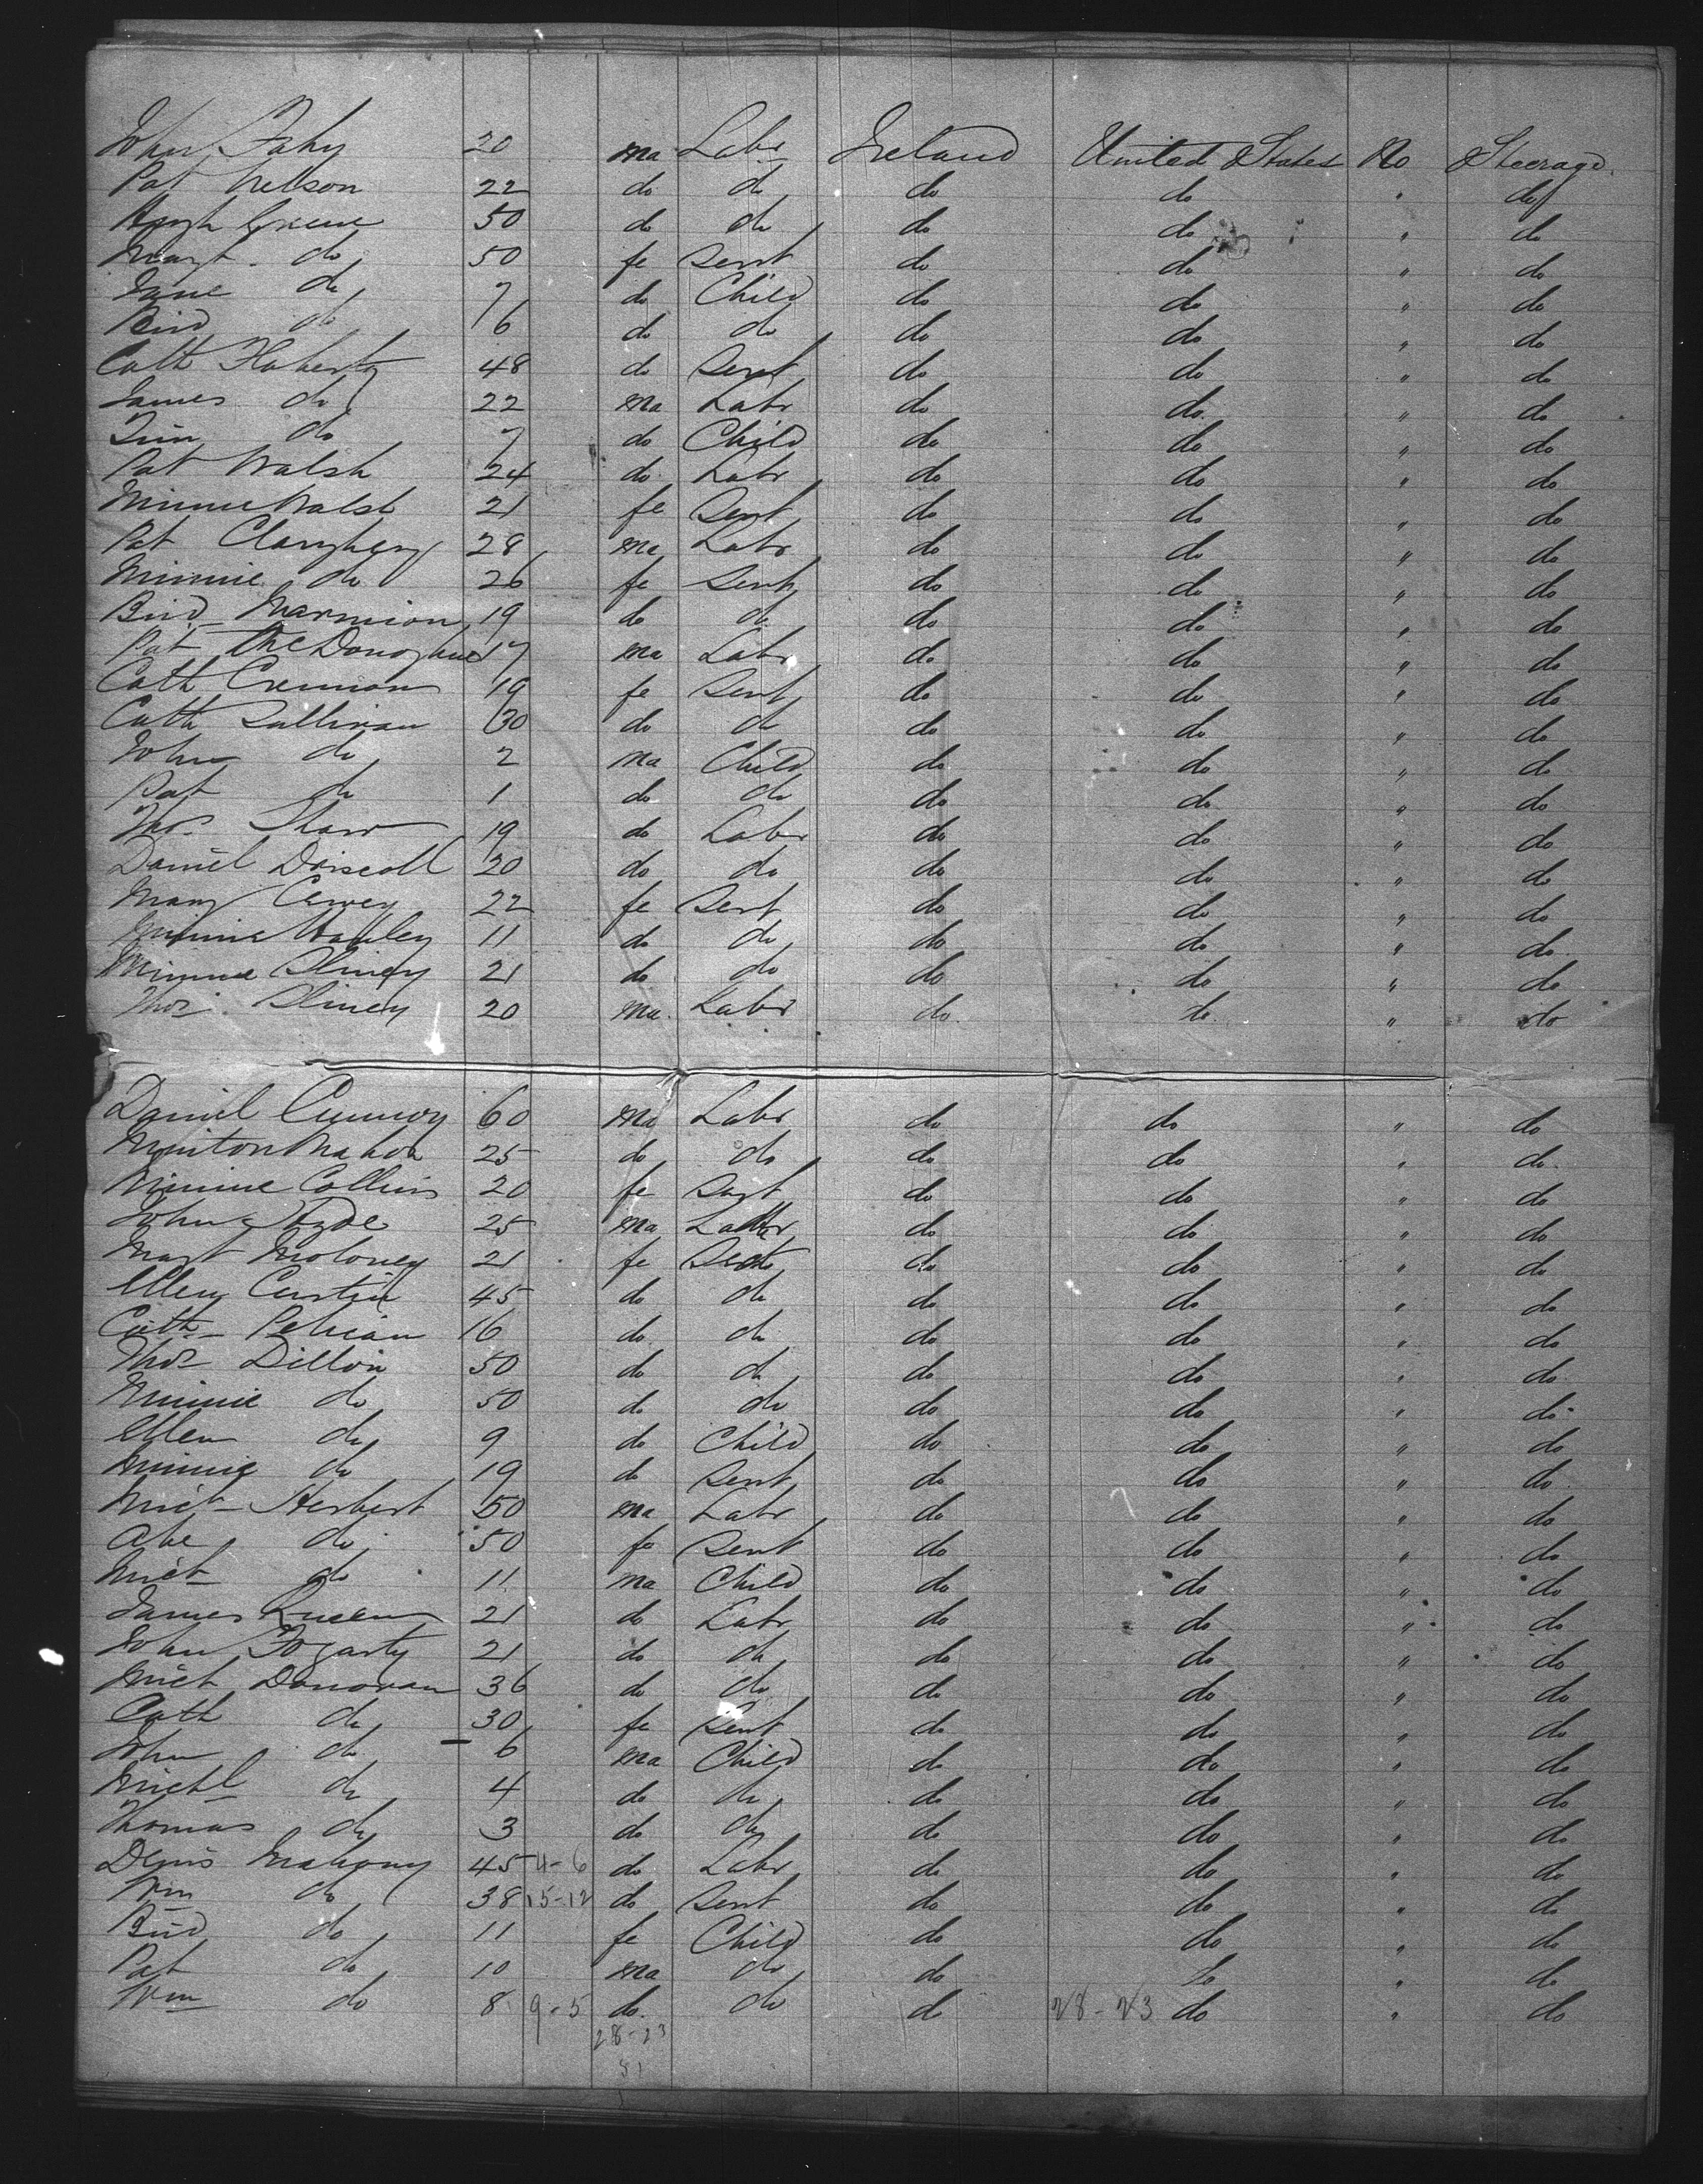 John Fahy 20 ma Labr Ireland United States No Steerage
Pat Nelson 22 do do do do " do
Hugh Greene 50 do do do do " do
Margt do 50 fe Servt do do " do
Jane do 7 do Child do do " do
Brid do 6 do do do do " do
Cath Flaherty 48 do Servt do do " do
James do 22 ma Labr do do " do
Tim do 7 do Child do do " do
Pat Walsh 24 do Labr do do " do
Minnie Walsh 21 fe Servt do do " do
Pat 28 ma Labr do do " do
Minnie do 26 fe Servt do do " do
Brid Marmion 19 do do do do " do
Pat McDonoghue 17 ma Labr do do " do
Cath 19 fe Servt do do " do
Cath Sullivan 30 do do do do " do
John do 2 ma Child do do " do
Pat do 1 do do do do " do
Thos Shaw 19 do Labr do do " do
Daniel Driscoll 20 do do do do " do
Mary 22 fe Servt do do " do
Minnie 11 do do do do " do
Minnie Sliney 21 do do do do " do
Thos Sliney 20 ma Labr do do " do
Daniel 60 ma Labr do do " do
Mahon 25 do do do do " do
Minnie Collins 20 fe Servt do do " do
John Hyde 25 ma Labr do do " do
Margt Moloney 21 fe Servt do do " do
Ellen Curtin 45 do do do do " do
Cath 16 do do do do " do
Thos Dillon 50 do do do do " do
Minnie do 50 do do do do " do
Ellen do 9 do Child do do " do
Minnie do 19 do Servt do do " do
Mict Herbert 50 ma Labr do do " do
Abe do 50 fe Servt do do " do
Mict do 11 ma Child do do " do
James 21 do Labr do do " do
John Fogarty 21 do do do do " do
Mict Donovan 36 do do do do " do
Cath do 30 fe Servt do do " do
John do 6 ma Child do do " do
Michl do 4 do do do do " do
Thomas do 3 do do do do " do
Denis Mahony 45 4-6 do Labr do do " do
Wm do 38 15-12 do Servt do do " do
Brid do 11 fe Child do do " do
Pat do 10 ma do do do " do
Wm do 8 9-5 do do do 28-23 do " do
28-23
51